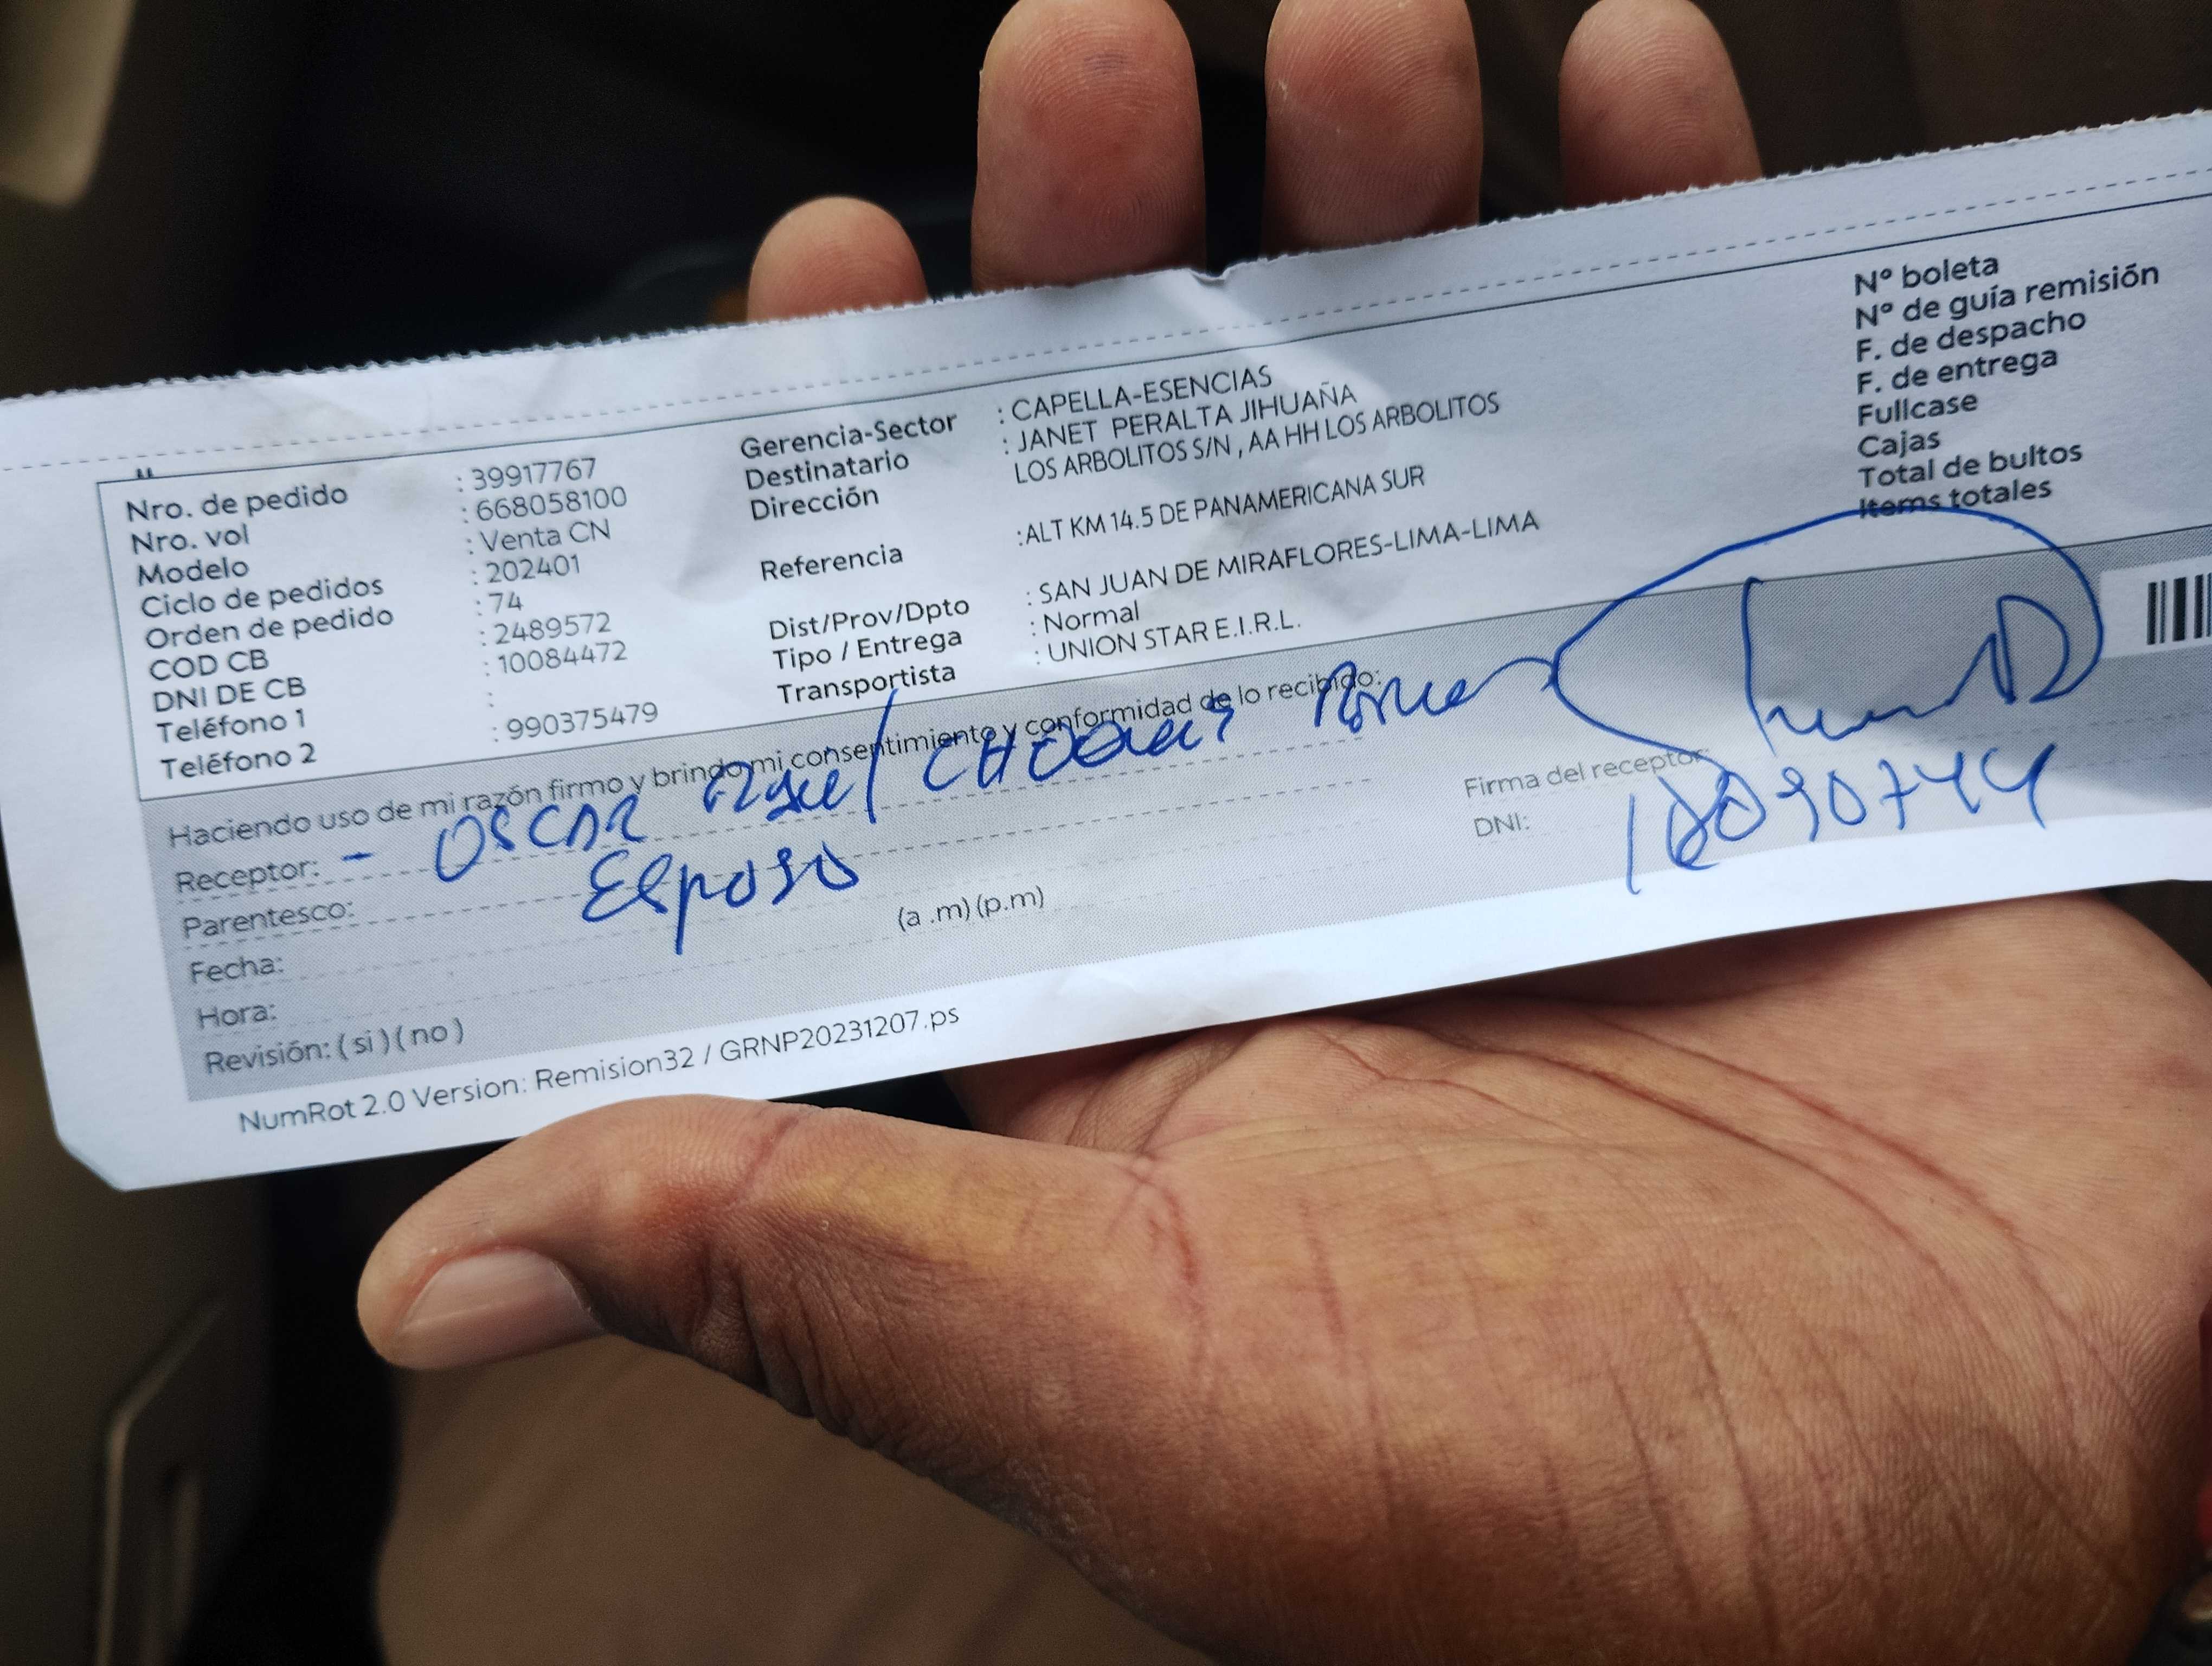 Nro. de pedido : 39917767
Nro. vol : 668058100
Modelo : Venta CN
Ciclo de pedidos : 202401
Orden de pedido : 74
COD CB : 2489572
DNI DE CB : 10084472
Teléfono 1 :
Teléfono 2 : 990375479
Gerencia-Sector : CAPELLA-ESENCIAS
Destinatario : JANET PERALTA JIHUAÑA
Dirección LOS ARBOLITOS S/N , AA HH LOS ARBOLITOS
Referencia :ALT KM 14.5 DE PANAMERICANA SUR
Dist/Prov/Dpto : SAN JUAN DE MIRAFLORES-LIMA-LIMA
Tipo / Entrega : Normal
Transportista : UNION STAR E.I.R.L.
Nº boleta
Nº de guía remisión
F. de despacho
F. de entrega
Fullcase
Cajas
Total de bultos
Items totales
Haciendo uso de mi razón firmo y brindo mi consentimiento y conformidad de lo recibido:
Receptor: - OSCAR
Parentesco: Esposo
Fecha:
Hora: (a .m) (p.m)
Revisión: ( si ) ( no )
Firma del receptor:
DNI:
NumRot 2.0 Version: Remision32 / GRNP20231207.ps